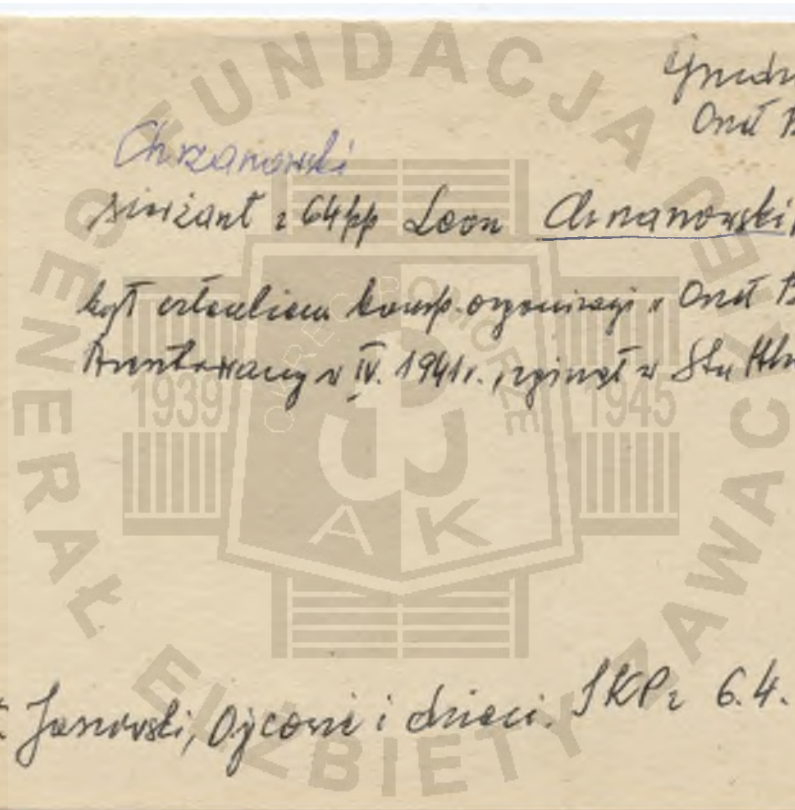 Orzeł
Chrzanowski
sierżant z 64pp Leon Chrzanowski,
był członkiem konsp. organizacji "Orzeł
Aresztowany w IV. 1941r., zginął w Stutth
Jasnowski, Ojcowie i dzieci. IKP z 6.4.
FUNDACJA GENERAŁ ELŻBIETY ZAWACKIEJ
OKRĘG POMORZE
1939 1945
AK